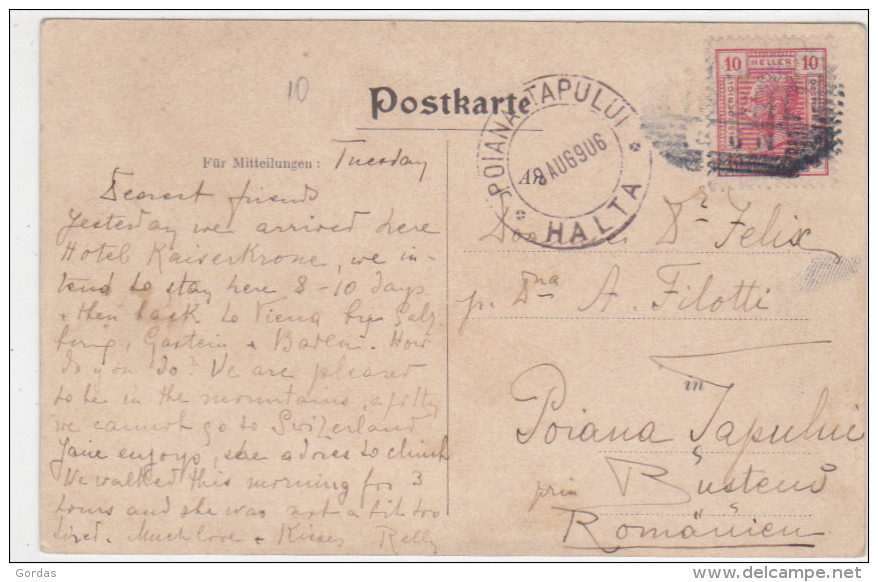 10
Postkarte
Für Mitteilungen: Tuesday
Dearest friends
Yesterday we arrived here
Hotel Kaiserkrone, we in-
tend to stay here 8-10 days
+ then back to Viena by Salz
burg, Gastein + Baden. How
do you do? We are pleased
to be in the mountains, a pitty
we cannot go to Switzerland
Jane enjoys, she adores to climb
We walked this morning for 3
hours and she was not a bit too
tired. Much love + Kisses Relly
POIANA TAPULUI
8 AUG 906
HALTA
10 HELLER 10
An
Dr Felix
pr. Dna A. Filotti
in
Poiana Țapului
prin Bușteni
Românien
Gordas
delcampe.net